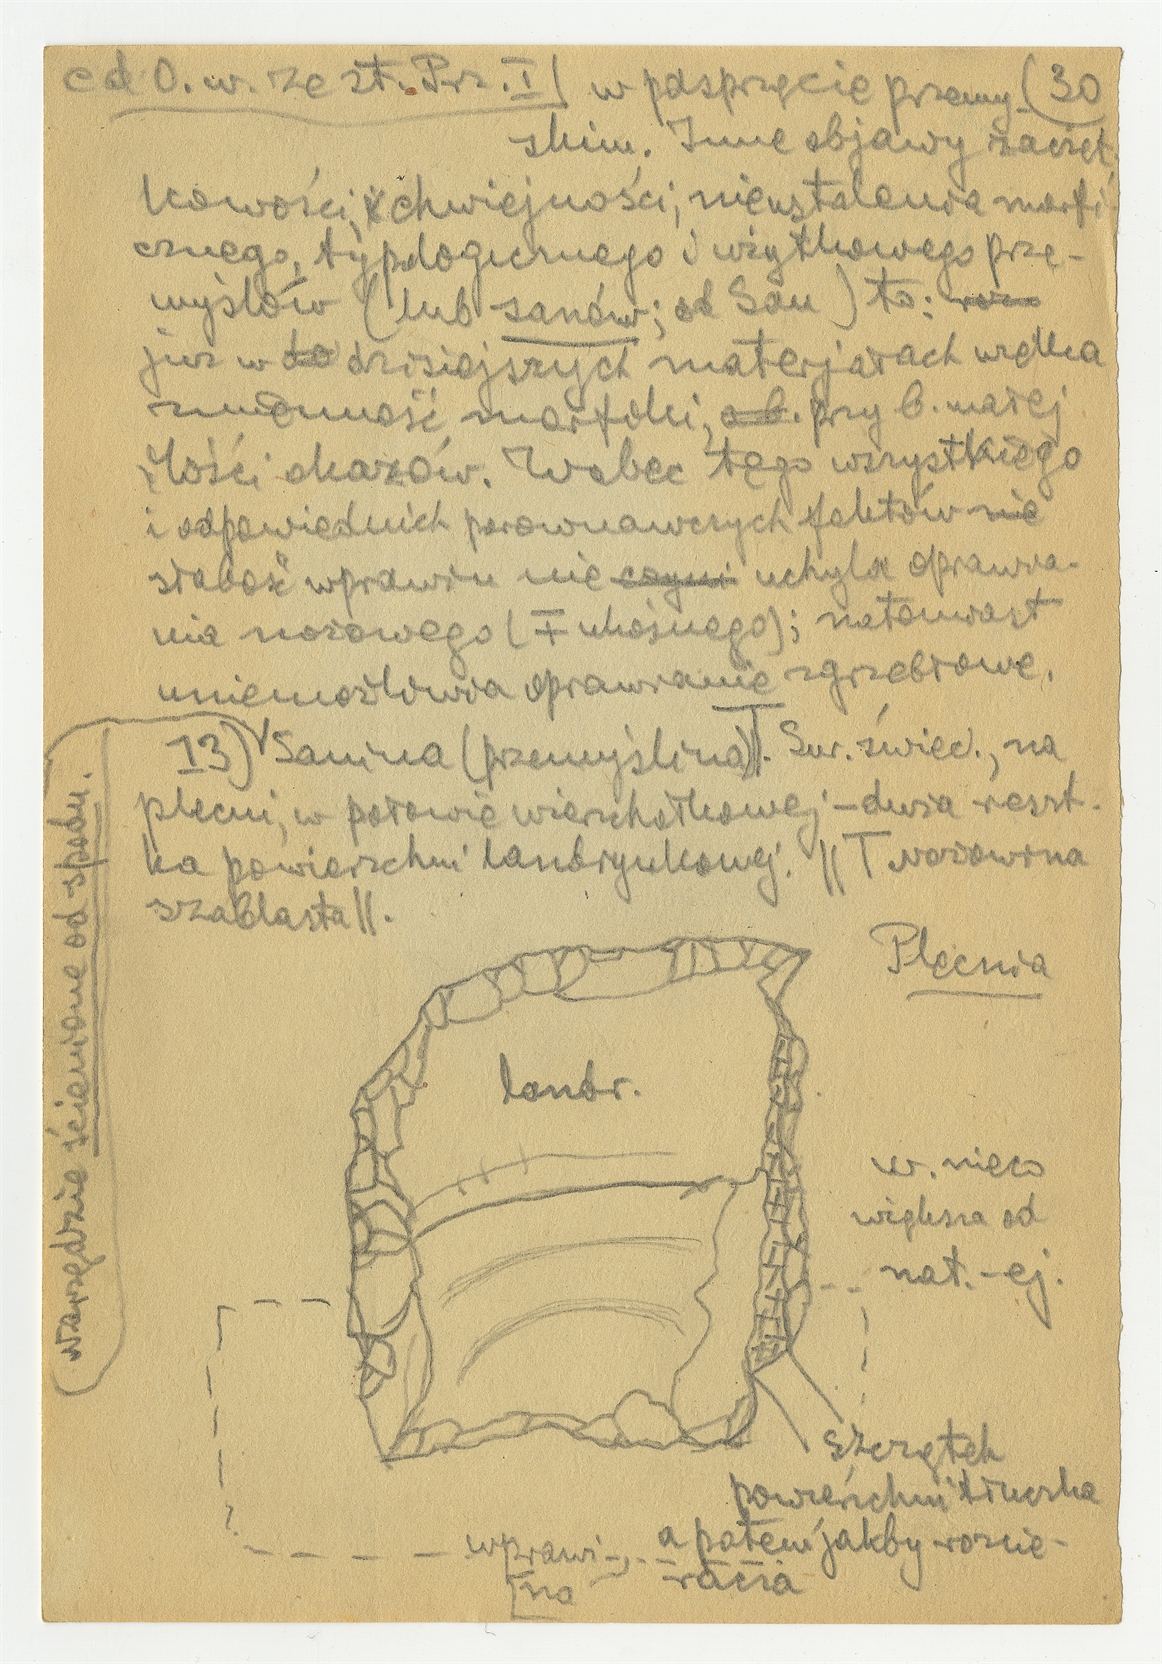 cd O. w. ze st. Prz. I) w podsprzęcie przemy- (30
skim. Inne objawy zacząt-
kowości, chwiejności, nieustalenia morfi-
cznego, typologicznego i użytkowego prze-
myślów (lub sanów; od San) to:
już w do dzisiejszych materjałach wielka
zmienność morfoli, o b. przy b. małej
ilości okazów. Wobec tego wszystkiego
i odpowiednich porównawczych faktów nie
słabość wprawin nie czyni uchyla oprawia-
nia nożowego (∓ ukośnego); natomiast
uniemożliwia oprawianie zgrzebłowe.
13) Sanina (przemyślina). Sur. świec., na
płecni, w połowie wierzchołkowej – dwa reszt-
ka powierzchni landrynkowej. || T nożowina
szablasta ||.
narzędzie ścienione od spodu.
Płecnia
landr.
w. nieco
większa od
nat. -ej.
szczątek
powierzchni tłuczka
a potem jakby rozcie-
racza
wprawi-
na